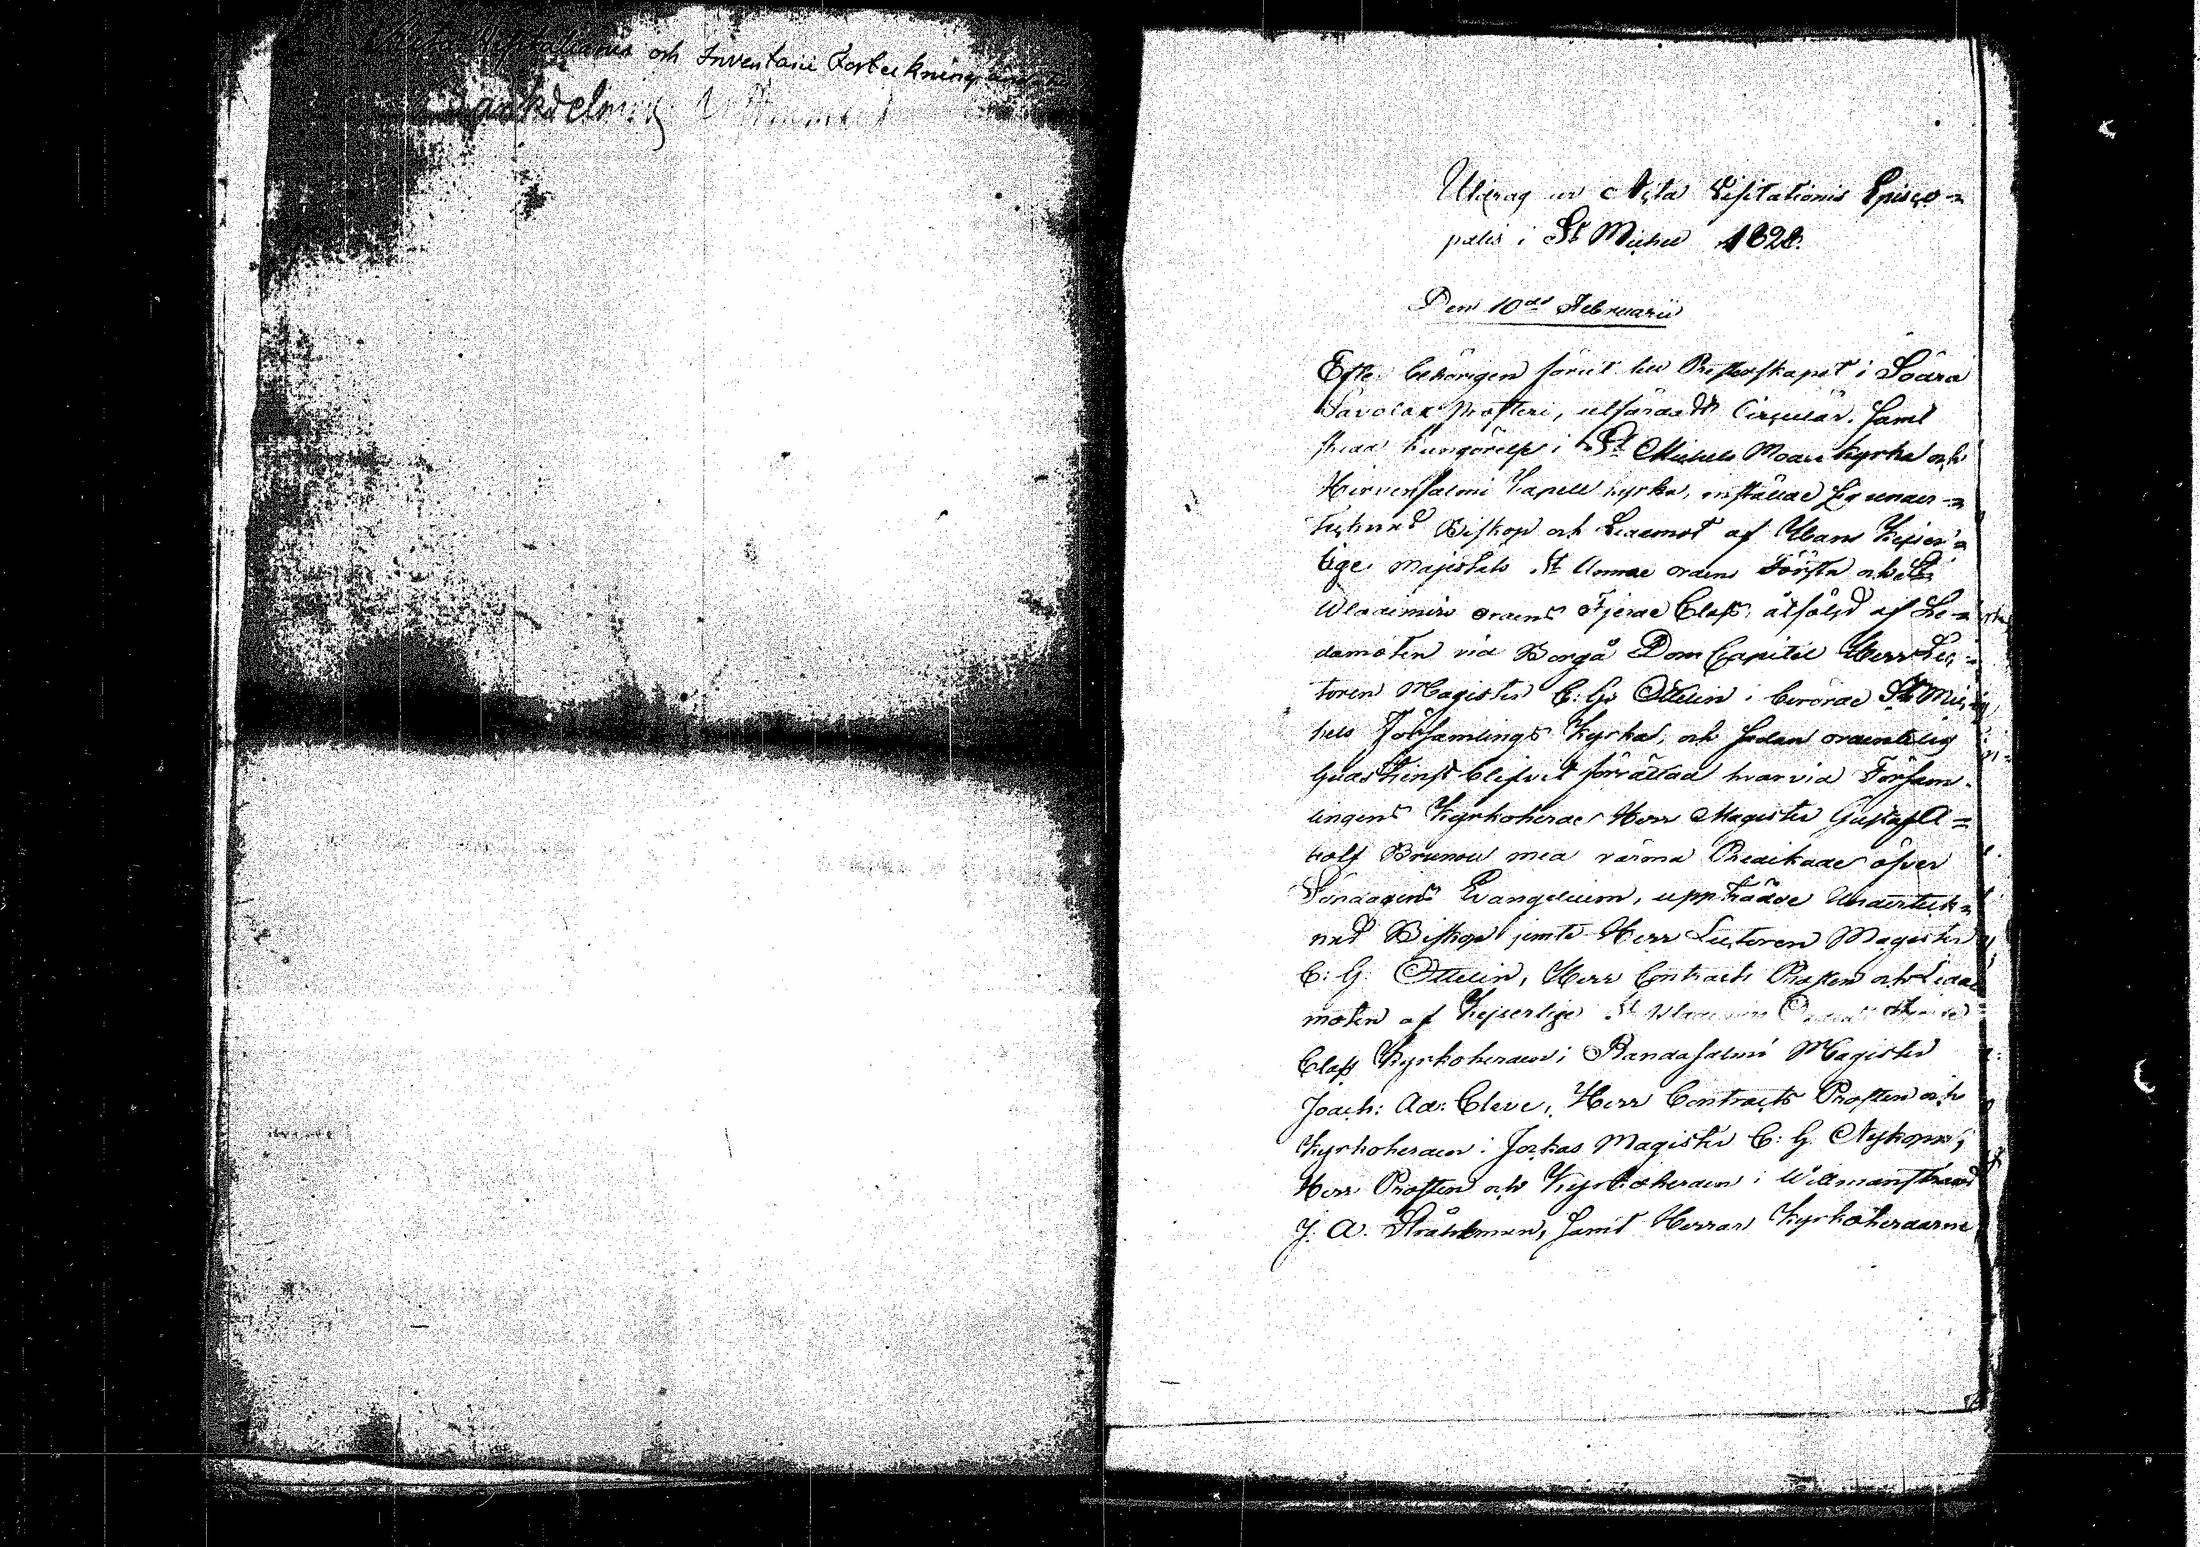 Acta Visitationis och Inventarie Förteckning
Utdrag ur Acta Visitationis Episco=
palis i St Michel 1828.
Den 10de Februarii
Efter behörigen förut till Presterskapet i Södra
Savolax Prosteri, utfärdadt Circulär, samt
skedd kungörelse i St Michels Moderkyrka och
Hirvensalmi Capell kyrka, instälde sig under=
tecknad Biskop och Ledamot af Hans Kejser=
lige Majestets St Annae ordens Första och St
Wladimirs ordens Fjerde Class, åtföljd af Le=
damoten vid Borgå Dom Capitel Herr Lec=
toren Magister C: G: Ottelin i berörde St Mic=
hels Församlings Kyrka, och sedan ordentelig
Gudstjenst blifvit förrättad hvarvid Försam=
lingens Kyrkoherde Herr Magister Gustaf A=
dolf Brunou med värma Predikade öfver
Söndagens Evangelium, uppträdde Underteck=
nad Biskop jemte Herr Lectoren Magister
C: G: Ottelin, Herr Contracts Prosten och Leda=
moten af Kejserlige St Wladimirs Ordens Fjerde
Class Kyrkoherden i Randasalmi Magister
Joach: Ad: Cleve, Herr Contracts Prosten och
Kyrkoherden i Jockas Magister C: G: Nykopp,
Herr Prosten och Kyrkoherden i Willmanstrand
J. A. Stråhlman, samt Herrar Kyrkoherdarne